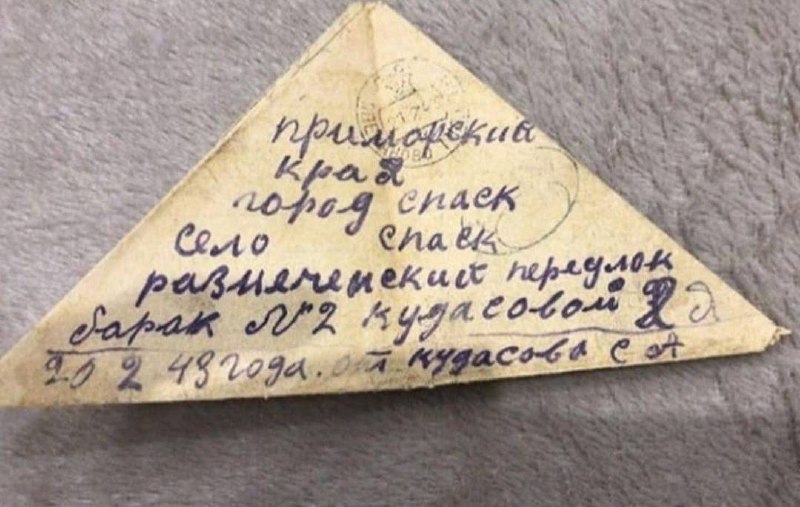 приморский
край
город спаск
село спаск
переулок
барак №2 кудасовой
20 2 43 года. от кудасова с А